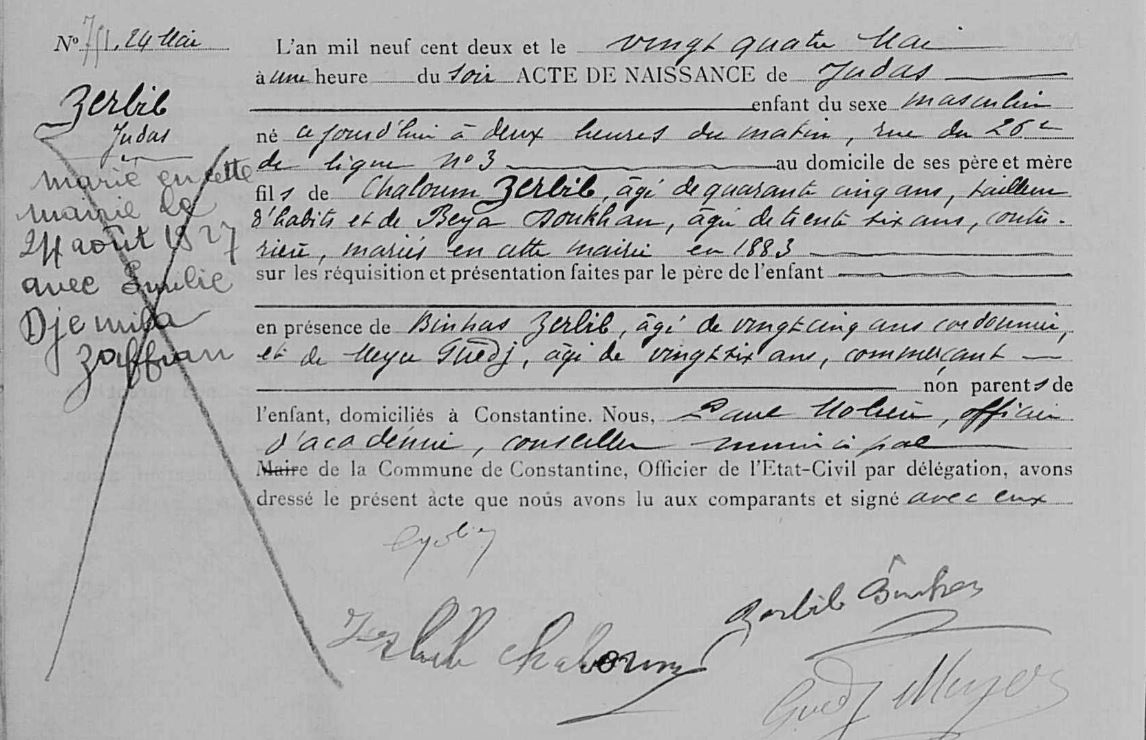 Nº 751. 24 Mai
Zerbib
Judas
marié en cette
mairie le
24 août 1927
avec Emilie
Djemila
Zaffran
L'an mil neuf cent deux et le vingt quatre Mai
à une heure du soir ACTE DE NAISSANCE de Judas
enfant du sexe masculin
né cejourd'hui à deux heures du matin, rue du 26e
de ligne nº 3 au domicile de ses père et mère
fils de Chaloum Zerbib, âgé de quarante cinq ans, tailleur
d'habits et de Beya Doukhan, âgée de trente six ans, coutu-
rière, mariés en cette mairie en 1883
sur les réquisition et présentation faites par le père de l'enfant
en présence de Binhas Zerbib, âgé de vingt cinq ans cordonnier,
et de Meyer Guedj, âgé de vingt six ans, commerçant
non parents de
l'enfant, domiciliés à Constantine. Nous, Paul, officier
d'académie, conseiller municipal
Maire de la Commune de Constantine, Officier de l'Etat-Civil par délégation, avons
dressé le présent acte que nous avons lu aux comparants et signé avec eux
Zerbib Binhas
Zerbib Chaloum
Guedj Meyer